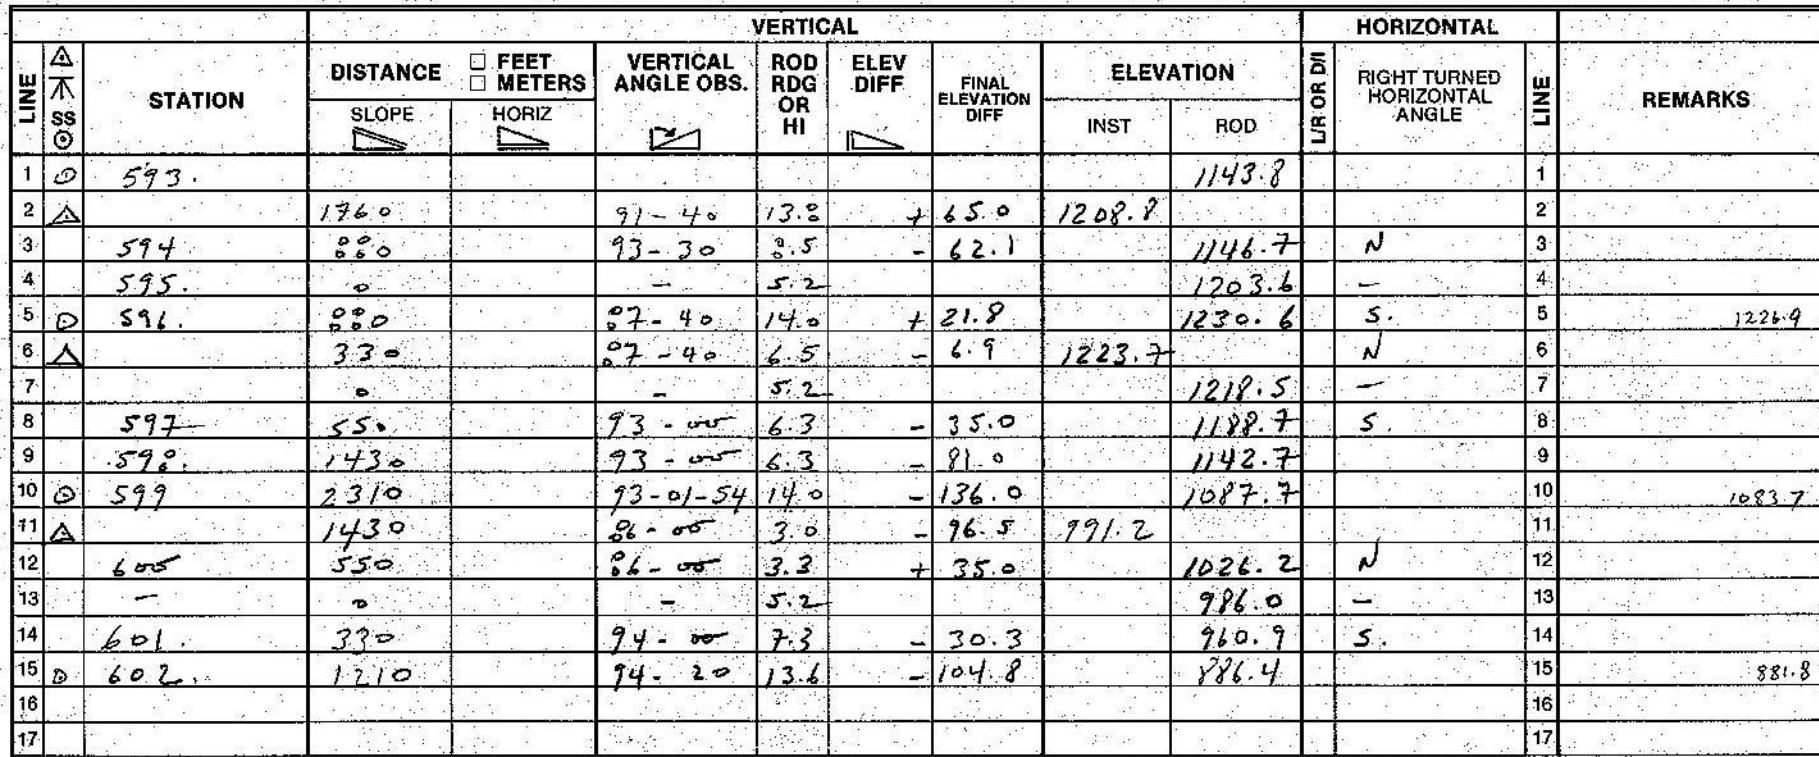 VERTICAL HORIZONTAL
LINE SS STATION DISTANCE □ FEET □ METERS VERTICAL ANGLE OBS. ROD RDG OR HI ELEV DIFF FINAL ELEVATION DIFF ELEVATION L/R OR D/I RIGHT TURNED HORIZONTAL ANGLE LINE REMARKS
SLOPE HORIZ INST ROD
1 593. 1143.8 1
2 1760 91-40 13.8 + 65.0 1208.8 2
3 594 880 93-30 8.5 - 62.1 1146.7 N 3
4 595. 0 - 5.2 1203.6 - 4
5 596. 880 87-40 14.0 + 21.8 1230.6 S. 5 1226.9
6 330 87-40 6.5 - 6.9 1223.7 N 6
7 0 - 5.2 1218.5 - 7
8 597 550 93-00 6.3 - 35.0 1188.7 S. 8
9 598. 1430 93-00 6.3 - 81.0 1142.7 9
10 599 2310 93-01-54 14.0 - 136.0 1087.7 10 1083.7
11 1430 86-00 3.0 - 96.5 991.2 11
12 600 550 86-00 3.3 + 35.0 1026.2 N 12
13 - 0 - 5.2 986.0 - 13
14 601. 330 94-00 7.3 - 30.3 960.9 S. 14
15 602. 1210 94-20 13.6 - 104.8 886.4 15 881.8
16 16
17 17